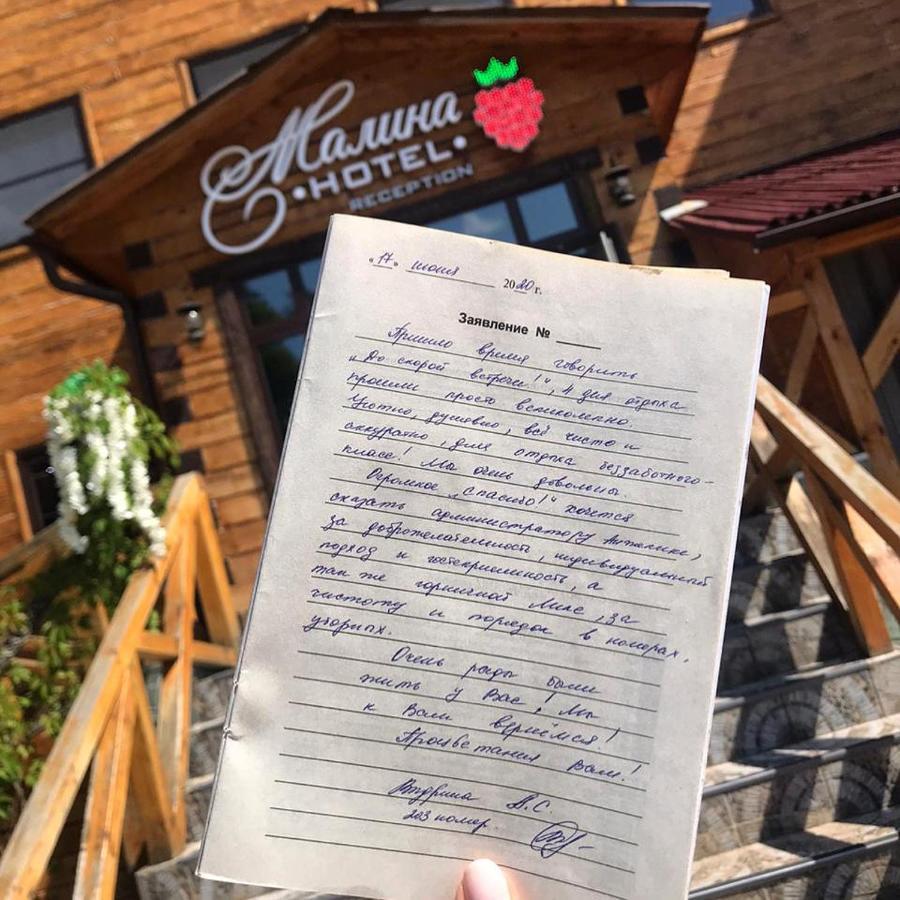 Малина
HOTEL
RECEPTION
"17" июня 2020 г.
Заявление № ____
Пришло время говорить
"До скорой встречи!", 4 дня отдыха
прошли просто великолепно.
Уютно, душевно, всё чисто и
аккуратно, для отдыха беззаботного -
класс! Мы очень довольны.
Огромное "Спасибо!" хочется
сказать администратору Анжелике,
за доброжелательность, индивидуальный
подход и гостеприимность, а
так же горничной Лике, за
чистоту и порядок в номерах,
уборных.
Очень рады были
жить у Вас! Мы
к Вам вернёмся!
Процветания Вам!
А.С.
203 номер